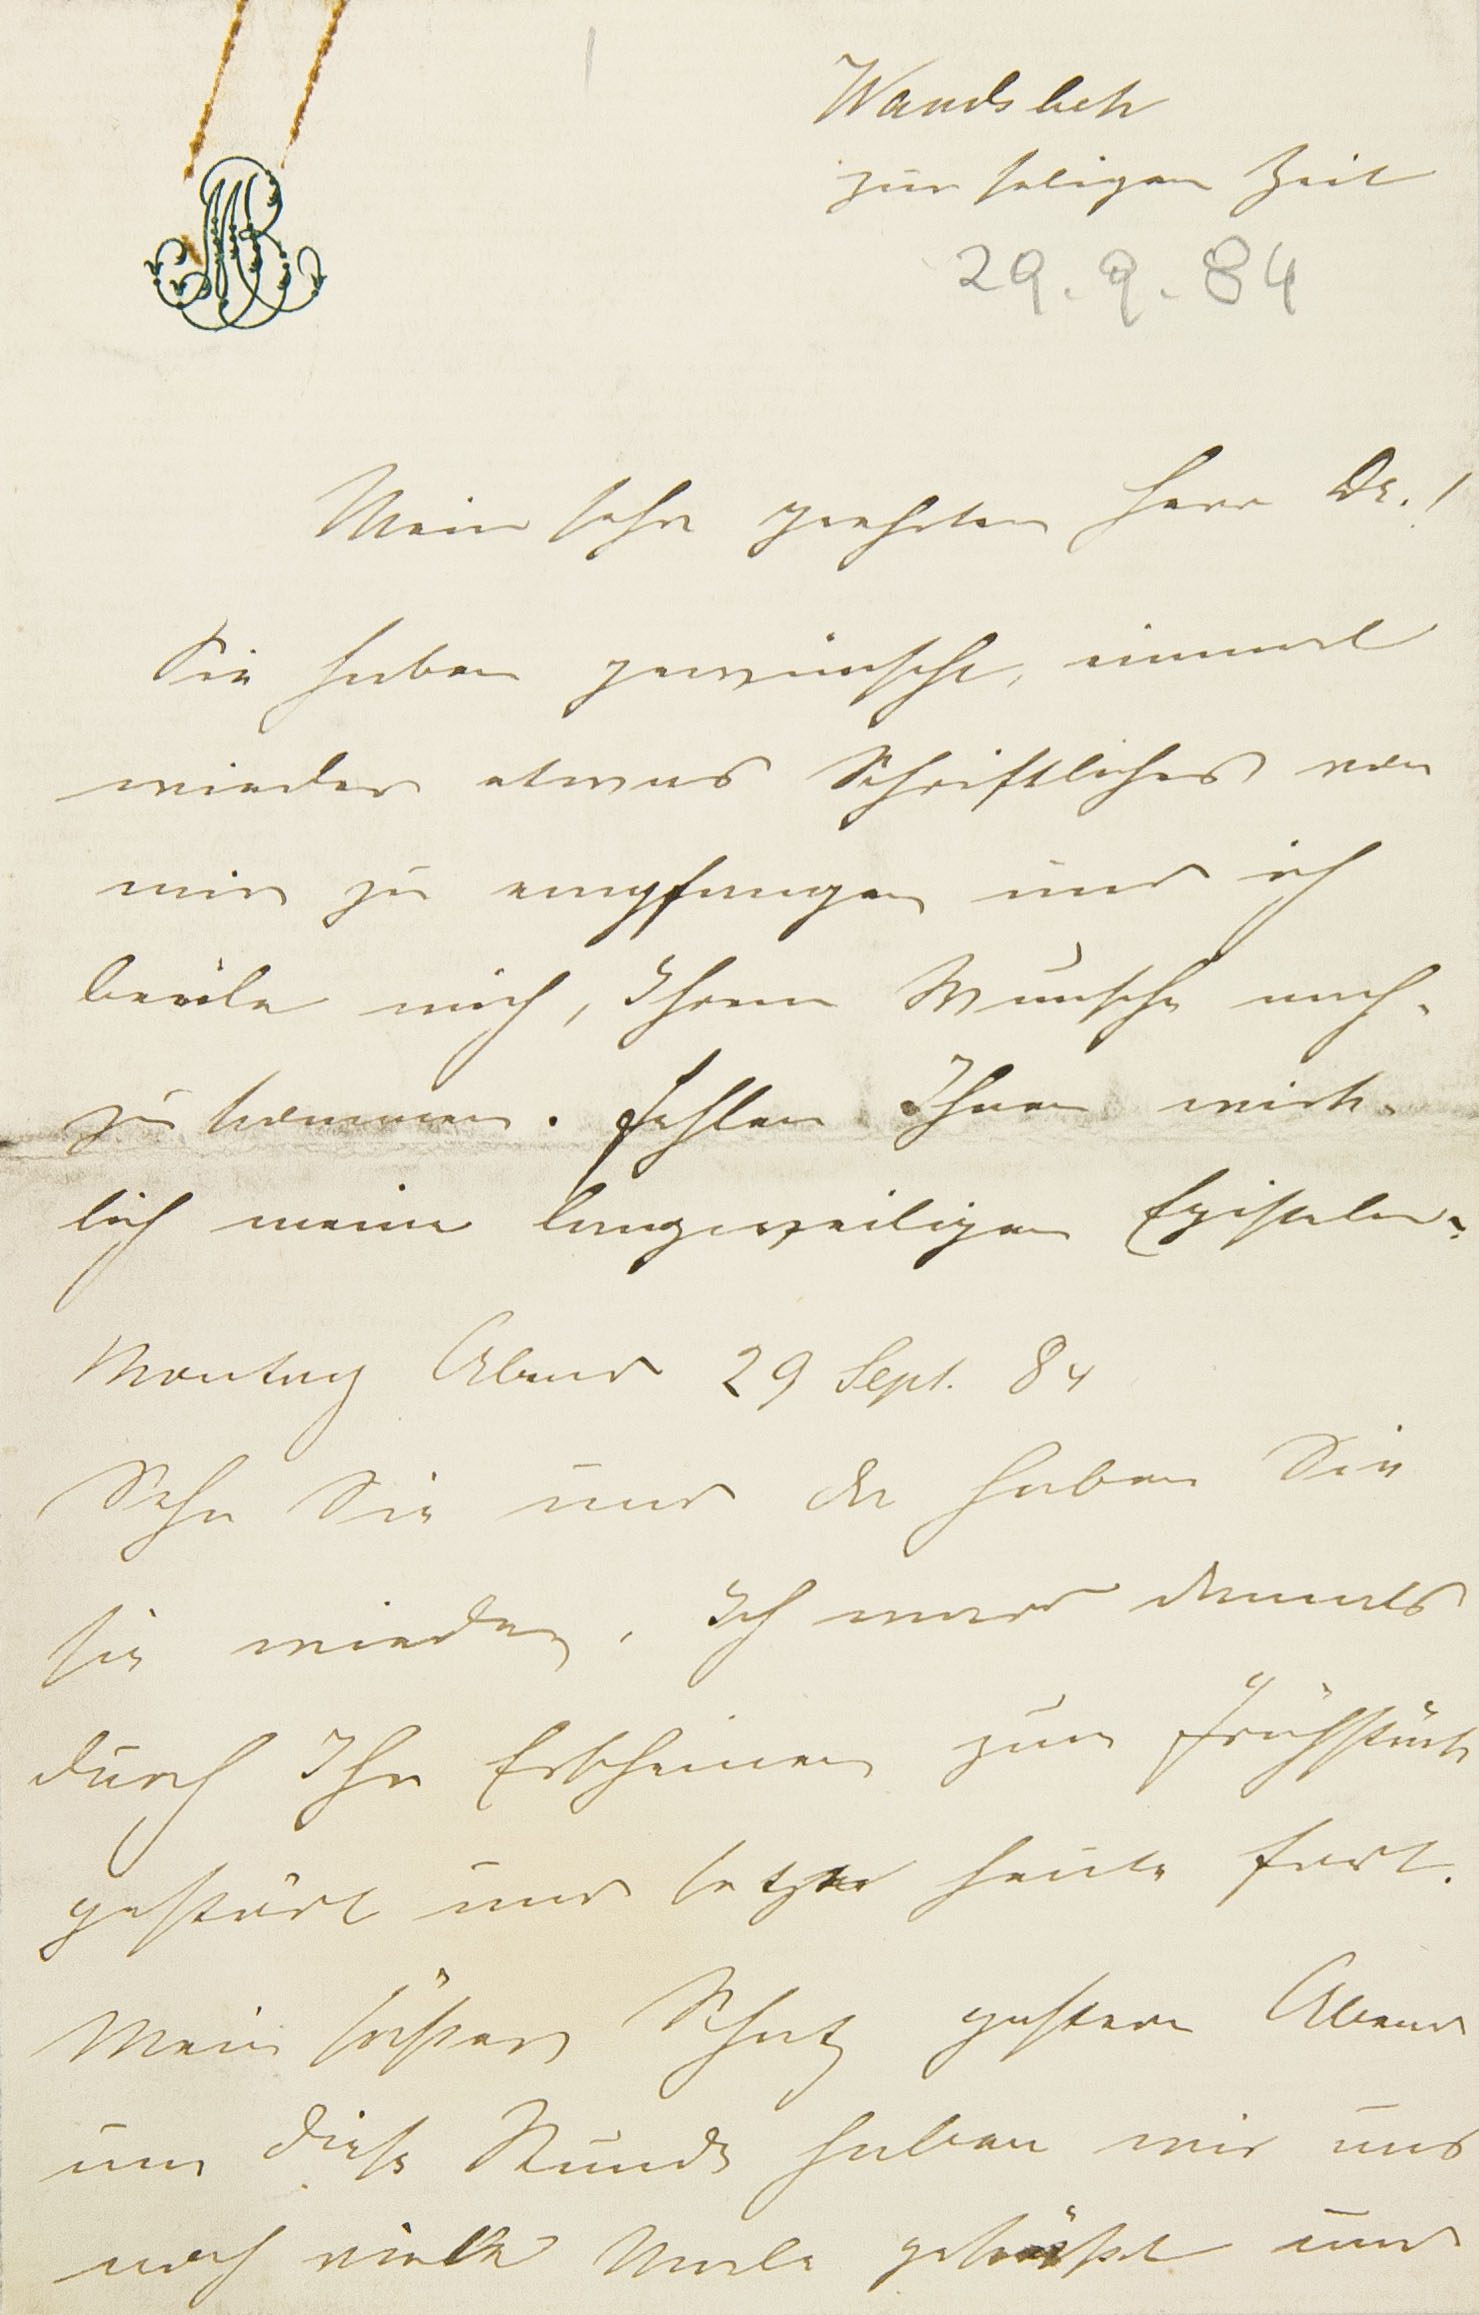 MB
Wandsbek
zur seligen Zeit
29.9.84
Mein sehr geehrter Herr Dr.!
Sie haben gewünscht, einmal
wieder etwas Schriftliches von
mir zu empfangen und ich
beeile mich, Ihrem Wunsche nach-
zukommen. Fehlen Ihnen wirk-
lich meine langweiligen Episteln?
Montag Abend 29 Sept. 84
Sehn Sie und da haben Sie
sie wieder. Ich ward damals
durch Ihr Erscheinen zum Frühstück
gestört und setze heute fort.
Mein süßer Schatz gestern Abend
um diese Stunde haben wir uns
noch viele Male geküßt und